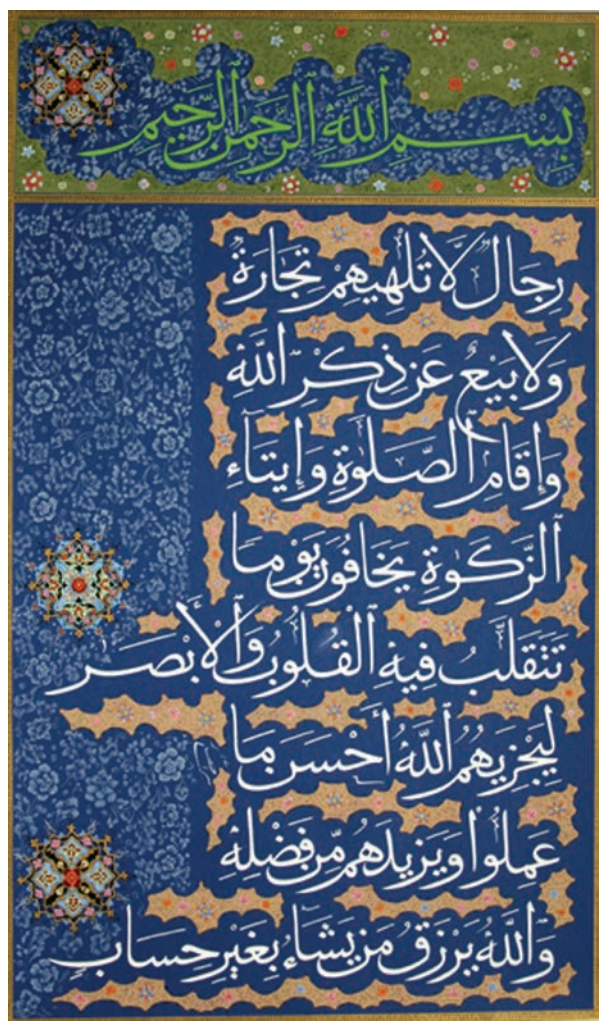 بِسْمِ ٱللَّهِ ٱلرَّحْمَٰنِ ٱلرَّحِيمِ
رِجَالٌ لَّا تُلْهِيهِمْ تِجَٰرَةٌ
وَلَا بَيْعٌ عَن ذِكْرِ ٱللَّهِ
وَإِقَامِ ٱلصَّلَوٰةِ وَإِيتَآءِ
ٱلزَّكَوٰةِ يَخَافُونَ يَوْمًا
تَتَقَلَّبُ فِيهِ ٱلْقُلُوبُ وَٱلْأَبْصَٰرُ
لِيَجْزِيَهُمُ ٱللَّهُ أَحْسَنَ مَا
عَمِلُوا۟ وَيَزِيدَهُم مِّن فَضْلِهِۦ
وَٱللَّهُ يَرْزُقُ مَن يَشَآءُ بِغَيْرِ حِسَابٍ